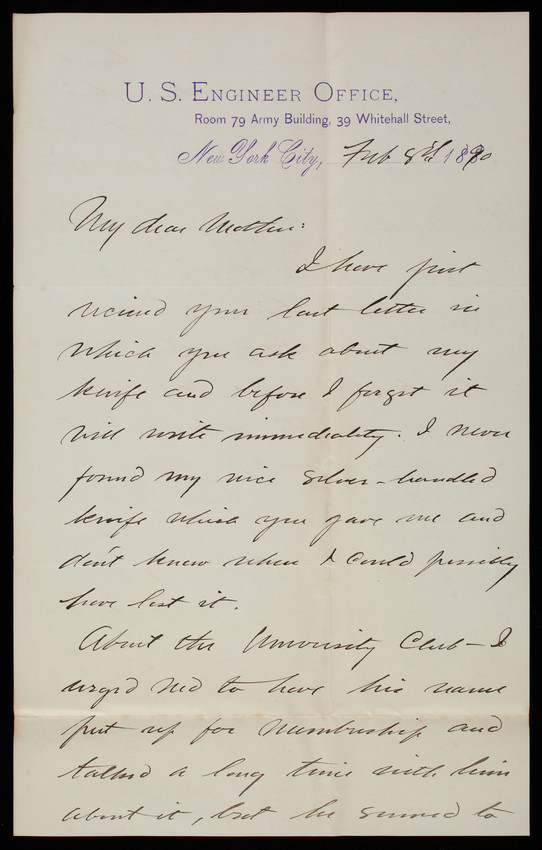 U. S. ENGINEER OFFICE,
Room 79 Army Building, 39 Whitehall Street,
New York City, Feb 8th 1890
My dear Mother:
I have just
received your last letter in
which you ask about my
knife and before I forget it
will write immediately. I never
found my nice silver-handled
knife which you gave me and
don't know where I could possibly
have lost it.
About the University Club - I
urged Ned to have his name
put up for membership and
talked a long time with him
about it, but he seemed to